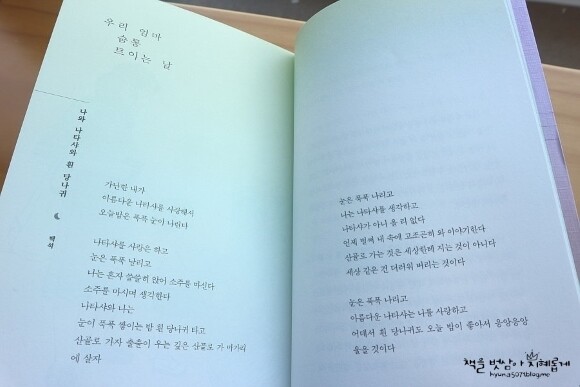 우리 엄마
숨통
트이는 날
나와 나타샤와 흰 당나귀
백석
가난한 내가
아름다운 나타샤를 사랑해서
오늘밤은 푹푹 눈이 나린다
나타샤를 사랑은 하고
눈은 푹푹 날리고
나는 혼자 쓸쓸히 앉어 소주를 마신다
소주를 마시며 생각한다
나타샤와 나는
눈이 푹푹 쌓이는 밤 흰 당나귀 타고
산골로 가자 출출이 우는 깊은 산골로 가 마가리
에 살자
눈은 푹푹 나리고
나는 나타샤를 생각하고
나타샤가 아니 올 리 없다
언제 벌써 내 속에 고조곤히 와 이야기한다
산골로 가는 것은 세상한테 지는 것이 아니다
세상 같은 건 더러워 버리는 것이다
눈은 푹푹 나리고
아름다운 나타샤는 나를 사랑하고
어데서 흰 당나귀도 오늘 밤이 좋아서 응앙응앙
울을 것이다
책을 벗삼아 지혜롭게
hyuna5071blog.me